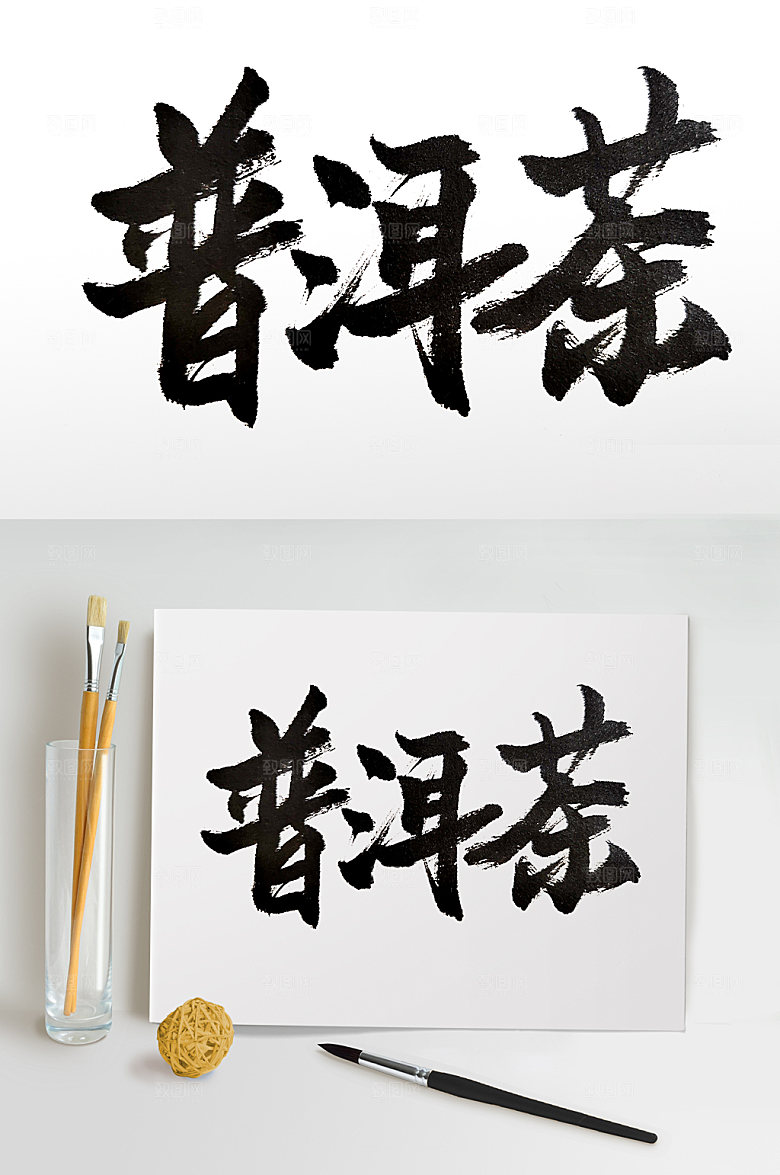 普洱茶
普洱茶